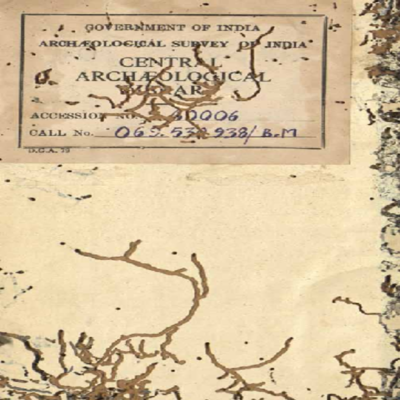 GOVERNMENT OF INDIA
ARCHÆOLOGICAL SURVEY OF INDIA
CENTRAL
ARCHÆOLOGICAL
ACCESSION NO.
CALL No. 069.530938/B.M
D.G.A. 79